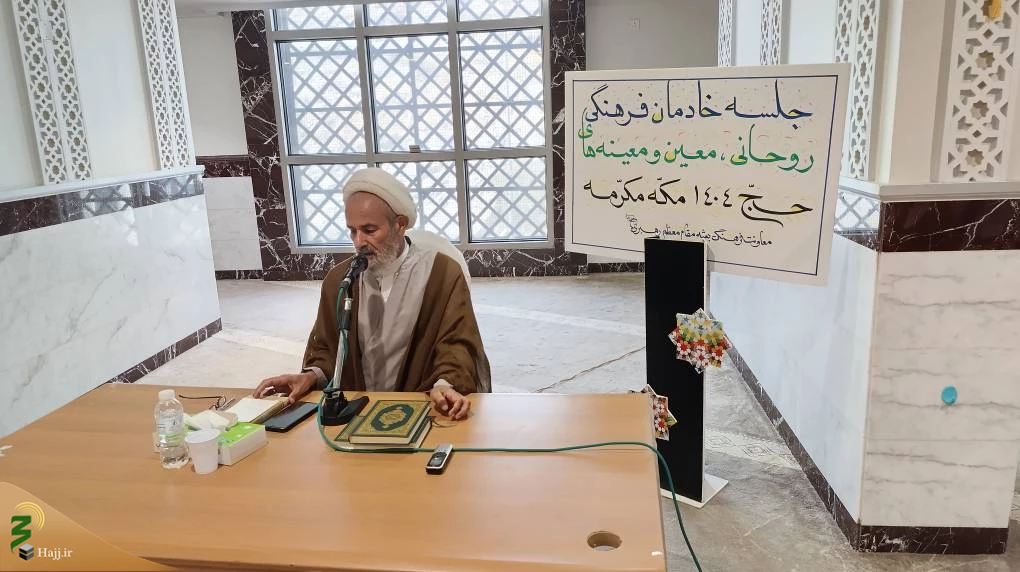 جلسه خادمان فرهنگی
روحانی، معین و معینه‌های
حجّ ۱۴۰۴ مکّه مکرّمه
معاونت فرهنگی بعثه مقام معظم رهبری
Hajj.ir